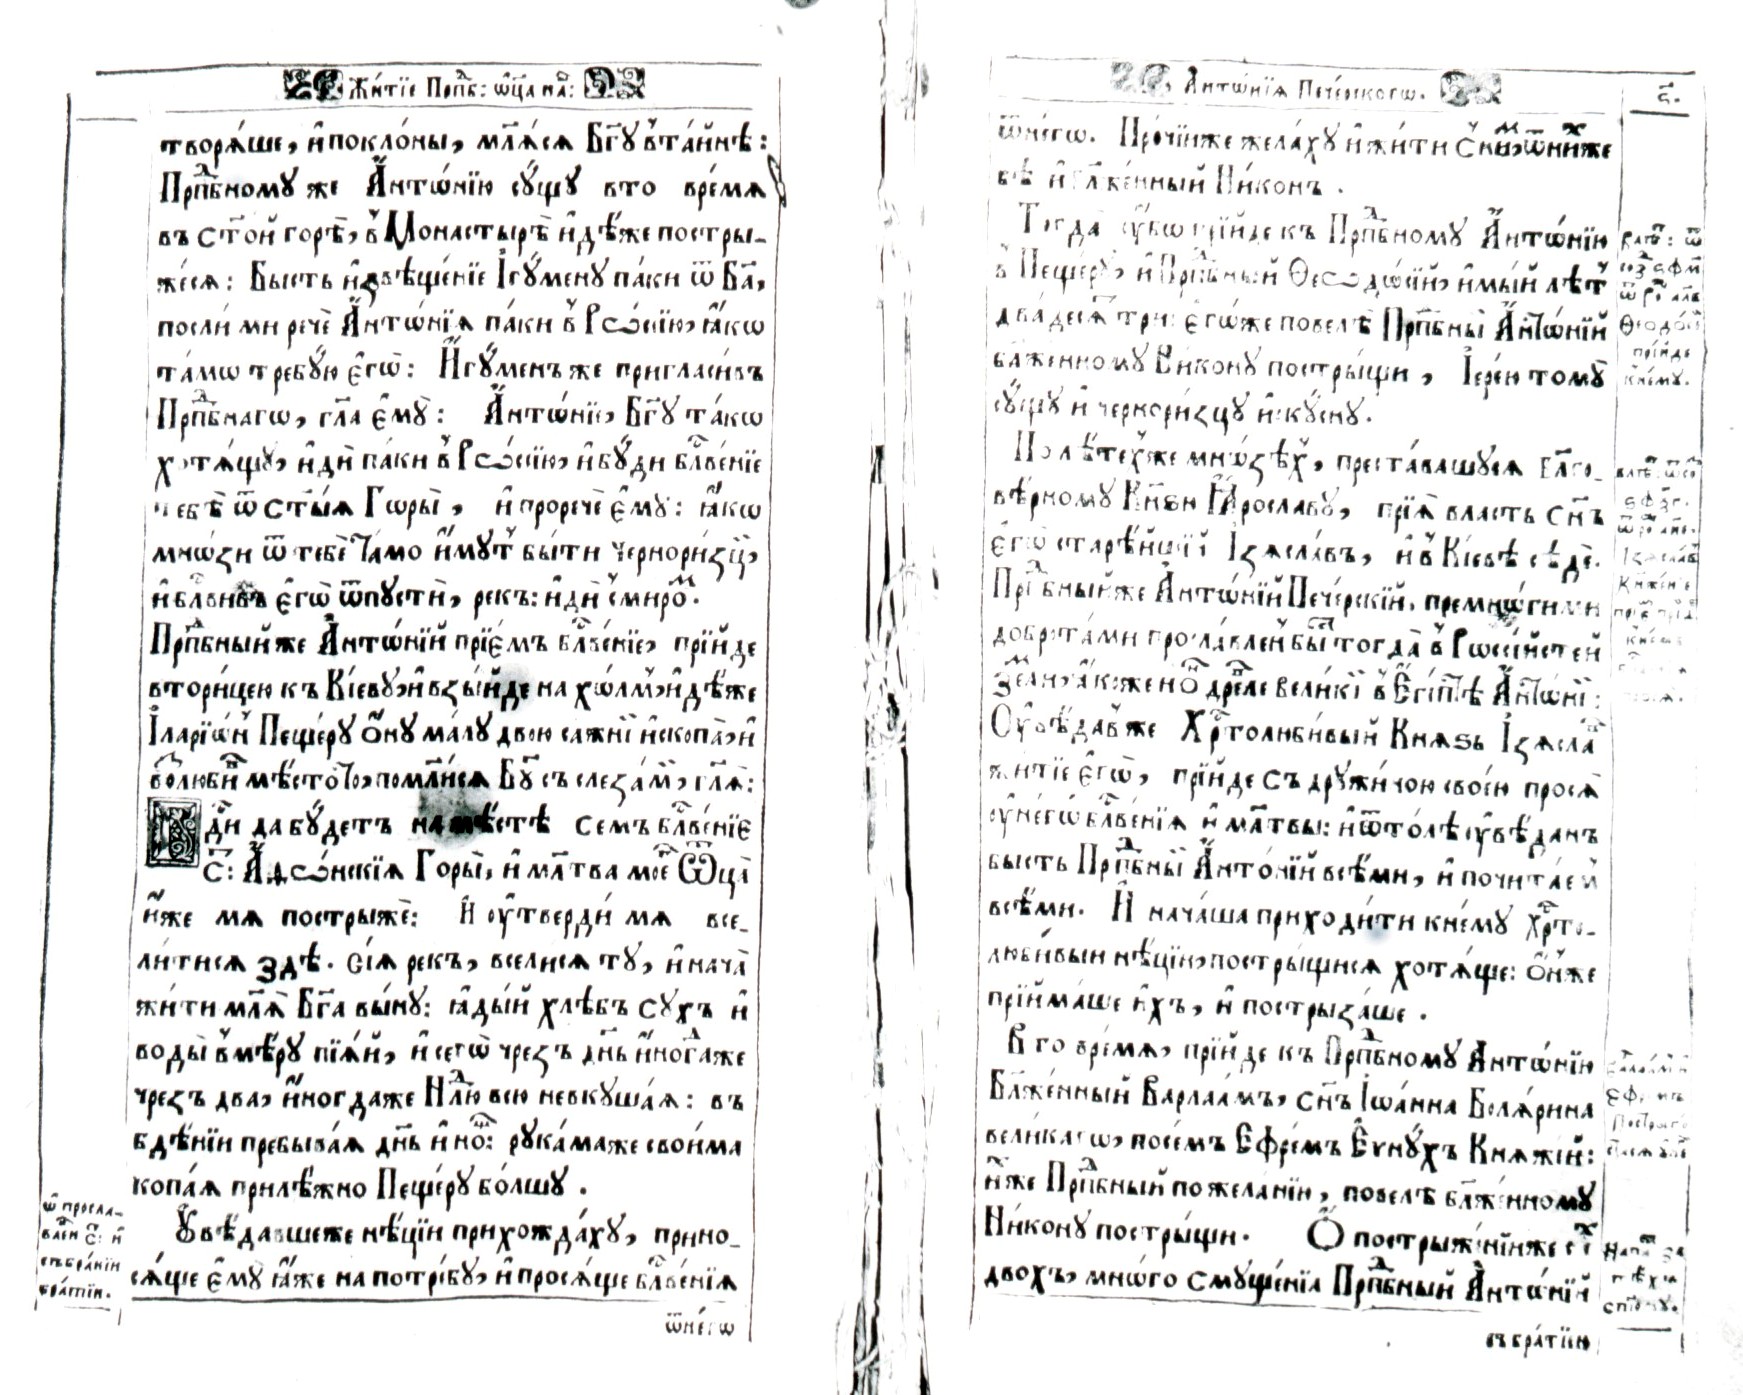 Жи́тїе Прпⷣб: ѡ҃ца на́ⷲ:
творѧ́ше, и҆ покло́ны, млѧ́сѧ Бг҃ꙋ в̾та́йнѣ:
Прпⷣбномꙋ же А҆нтѡ́нїю сꙋ́щꙋ вто вре́мѧ
въ ст҃о́й горѣ̀, в̾ Монастырѣ̀ и҆дѣ́же постры-
же́сѧ: Бысть и҆звѣще́нїе І҆гꙋ́менꙋ па́ки ѿ Бг҃а,
посли́ ми речѐ А҆нтѡ́нїѧ па́ки в̾ Рѡссі́ю, ꙗ҆́кѡ
та́мѡ тре́бꙋю є҆гѡ̀: И҆гꙋ́менъ же пригласи́въ
Прпⷣбнагѡ, гл҃а є҆мꙋ̀: А҆нтѡ́нїе, Бг҃ꙋ та́кѡ
хотѧ́щꙋ, и҆дѝ па́ки в̾ Рѡссі́ю, и҆ бꙋ́ди бл҃ве́нїе
тебѣ̀ ѿ ст҃ы́ѧ Гѡры̀, и҆ проречѐ є҆мꙋ̀: ꙗ҆́кѡ
мнѡ́зи ѿ тебѐ та́мо и҆́мꙋт̾ бы́ти черноризцы̀,
и҆ бл҃ви́въ є҆гѡ̀ ѿпꙋстѝ, рекъ: и҆дѝ с̾миро́ⷨ.
Прпⷣбный же А҆нтѡ́нїй прїе́мъ бл҃ве́нїе, прїи́де
втори́цею къ Кі́евꙋ, и҆ взы́йде на хѡ́лмъ, и҆дѣ́же
І҆ларїѡ́н̾ Пеще́рꙋ о҆́нꙋ ма́лꙋ двою са́жнїй и҆скопа̀, и҆
возлюбѝ мѣ́сто то̀, помли́сѧ Бг҃ꙋ съ слеза́ми, гл҃ѧ:
Гд҃и да бꙋ́детъ на мѣ́стѣ семъ бл҃ве́нїе
с: А҆ѳѡ́нскїѧ Горы̀, и҆ мл҃тва моегѡ̀ Ѻц҃а̀
и҆́же мѧ пострижѐ: И҆ ᲂу҆тверди́ мѧ все-
ли́тисѧ здѣ. Сїѧ̀ рекъ, всели́сѧ тꙋ, и҆ нача̀
жи́ти млѧ̀ Бг҃а вы́нꙋ: ꙗ҆ды́й хлѣбъ сꙋхъ и҆
воды̀ в̾мѣ́рꙋ пїѧ́й, и҆ сегѡ̀ чрезъ дн҃ь и҆ногⷣа́же
чрезъ два, и҆ногда́же Нⷣлю всю невкꙋша́ѧ: въ
бдѣ́нїи пребыва́ѧ дн҃ь и҆ но́щь: рꙋка́маже свои́ма
копа́ѧ прилѣ́жно Пеще́рꙋ бо́лшꙋ.
Оу҆вѣ́давшеже нѣ́цїи прихожда́хꙋ, прино-
сѧ́ще є҆мꙋ̀ ꙗ҆́же на потре́бꙋ, и҆ просѧ́ще бл҃ве́нїѧ
ѿне́гѡ
ѡ҆ просла-
вле́н с: и҆
събра́нїи
бра́тїи.
А҆нтѡ́нїѧ Пече́рскогѡ.
ѕ҃.
ѿне́гѡ. Про́чїи же жела́хꙋ и҆ жи́ти с̾ни́мъ, ѿни́хже
бѣ и҆ бл҃же́нный Ни́конъ.
Тогда̀ ᲂу҆́бѡ прїи́де къ Прпⷣбномꙋ А҆нтѡ́нїю
в̾ Пеще́рꙋ, и҆ Прпⷣбный Ѳеѡдѡ́сїй, и҆мы́й лѣ́т̾
два́десѧⷮ три: є҆гѡ́же повелѣ̀ Прпⷣбный А҆нтѡ́нїй
бл҃же́нномꙋ Ни́конꙋ постри́щи, І҆ере́ю томꙋ̀
сꙋ́щꙋ и҆ черноризцꙋ и҆скꙋ́снꙋ.
По лѣ́техже мнѡ́зѣх, преста́вшꙋсѧ Бл҃го-
вѣ́рномꙋ Кн҃зю Ꙗ҆росла́вꙋ, прїѧ̀ власть сн҃ъ
є҆гѡ̀ старѣ́йшїй І҆зѧсла́въ, и҆ в̾ Кі́евѣ сѣ́де.
Прпⷣбный же А҆нтѡ́нїй Пече́рскїй, премнѡ́гими
доброта́ми просла́влен бы́сть тогда̀ в̾ Рѡссі́йстей
земли́, ꙗ҆́коже и҆но́гда дре́вле вели́кїй в̾ Є҆гѵ́птѣ А҆нтѡ́нїй:
Оу҆вѣ́давже Хрⷭ҇толюби́вый Кнѧзь І҆зѧсла́въ
житїѐ є҆гѡ̀, прїи́де съ дрꙋжи́ною свое́ю просѧ̀
ᲂу҆не́гѡ бл҃ве́нїѧ и҆ мл҃твы: и҆ ѿто́лѣ ᲂу҆вѣ́данъ
бысть Прпⷣбный А҆нто́нїй всѣ́ми, и҆ почита́ем
всѣ́ми. И҆ нача́ша приходи́ти кне́мꙋ Хрⷭ҇то-
люби́выи нѣ́цїи, постри́щисѧ хотѧ́ще: Ѻ҆́нже
прїима́ше и҆́хъ, и҆ пострыза́ше.
В то вре́мѧ, прїи́де къ Прпⷣбномꙋ А҆нтѡ́нїю
Бл҃же́нный Варлаа́мъ, сн҃ъ І҆ѡа́нна Болѧ́рина
вели́кагѡ, посе́мъ Є҆фре́мъ Є҆ѵнꙋ́хъ Кнѧже́й:
и҆́же Прпⷣбный по жела́нїю, повелѣ̀ бл҃же́нномꙋ
Ни́конꙋ постри́щи. Ѻ҆ постриже́нїиже си́хъ
двохъ, мно́го смꙋще́нїѧ Прпⷣбный А҆нтѡ́нїй
въ бра́тїю
Ѳеодо́сїй
прїи́де
кне́мꙋ.
І҆зѧсла́в